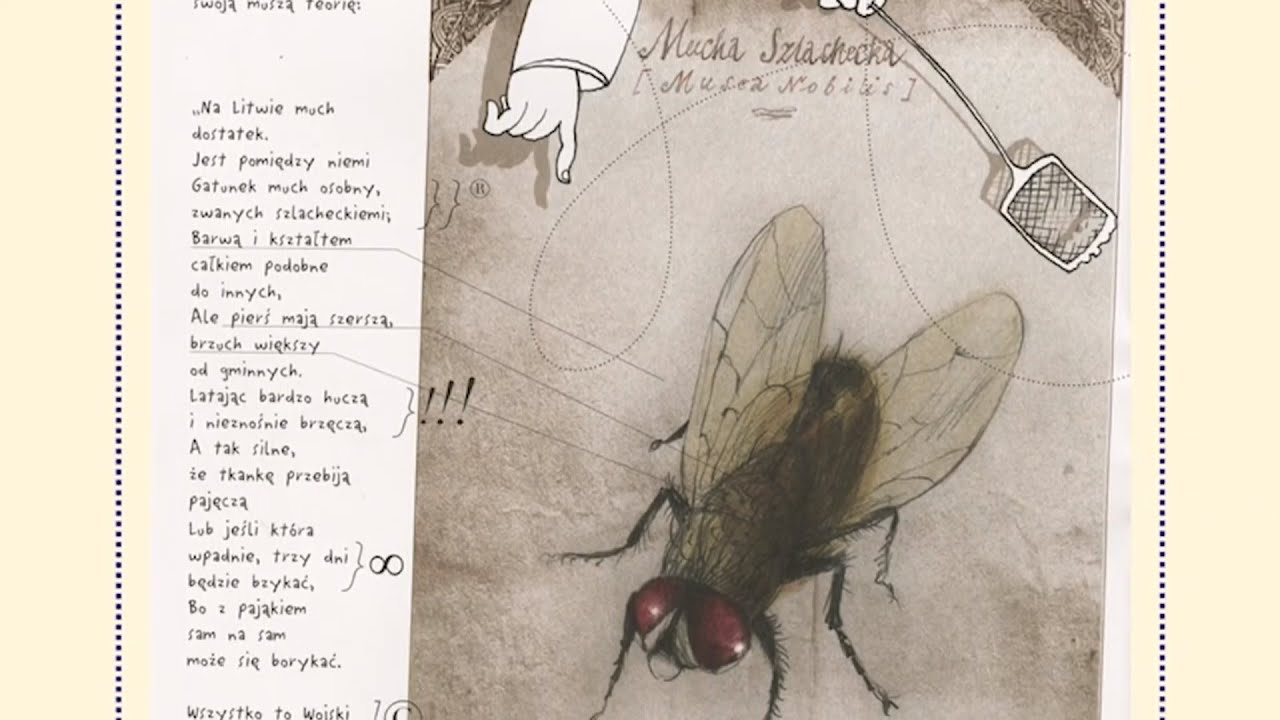 swoją muszą teorię:
„Na Litwie much
dostatek.
Jest pomiędzy niemi
Gatunek much osobny,
zwanych szlacheckiemi;
}} ®
Barwą i kształtem
całkiem podobne
do innych,
Ale pierś mają szerszą,
brzuch większy
od gminnych.
Latając bardzo huczą
i nieznośnie brzęczą,
} !!!
A tak silne,
że tkankę przebiją
pajęczą
Lub jeśli która
wpadnie, trzy dni
będzie bzykać,
} ∞
Bo z pająkiem
sam na sam
może się borykać.
Wszystko to Wojski
Mucha Szlachecka
[Musca Nobilis]